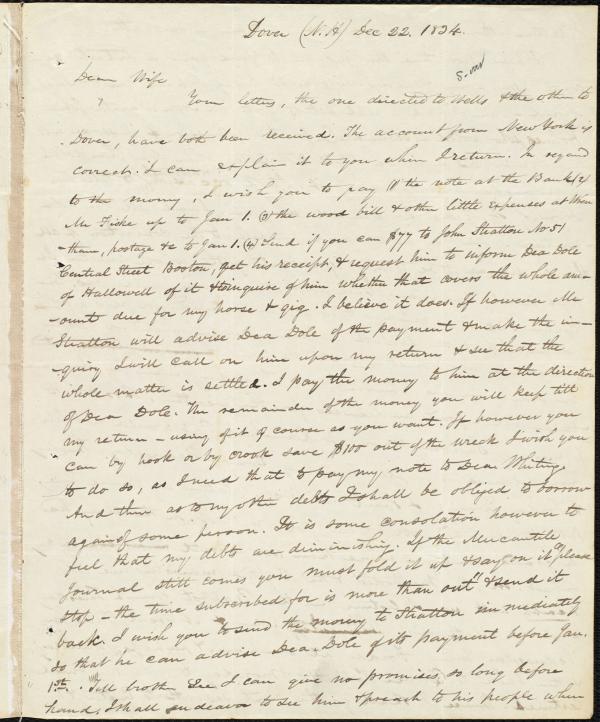 Dover (N.H) Dec 22. 1834.
Dear Wife
Your letters, the one directed to Wells & the other to
Dover, have both been received. The account from New York is
correct. I can explain it to you when I return. In regard
to the money, I wish you to pay (1) the note at the Bank (2)
Mr Fiske up to Jan 1. (3) the wood bill & other little expenses at Wren-
-tham, postage &c to Jan 1. (4) Send if you can $77 to John Stratton No 51
Central Street Boston, get his receipt, & request him to inform Dea Dole
of Hallowell of it & to inquire of him whether that covers the whole am-
-ount due for my horse & gig. I believe it does. If however Mr
Stratton will advise Dea Dole of the payment & make the in-
-quiry I will call on him upon my return & see that the
whole matter is settled. I pay the money to him at the direction
of Dea Dole. The remainder of the money you will keep till
my return - using of it of course as you want. If however you
can by hook or by crook save $100 out of the wreck I wish you
to do so, as I need that to pay my note to Dea. Whiting.
And then as to my other debts I shall be obliged to borrow
again of some person. It is some consolation however to
feel that my debts are diminishing. If the Mercantile
Journal still comes you must fold it up & say on it "please
stop - the time subscribed for is more than out" & send it
back. I wish you to send the money to Stratton immediately
so that he can advise Dea. Dole of its payment before Jan.
1st. Tell broth I can give no promises so long before
hand, I shall endeavor to see him & preach to his people when